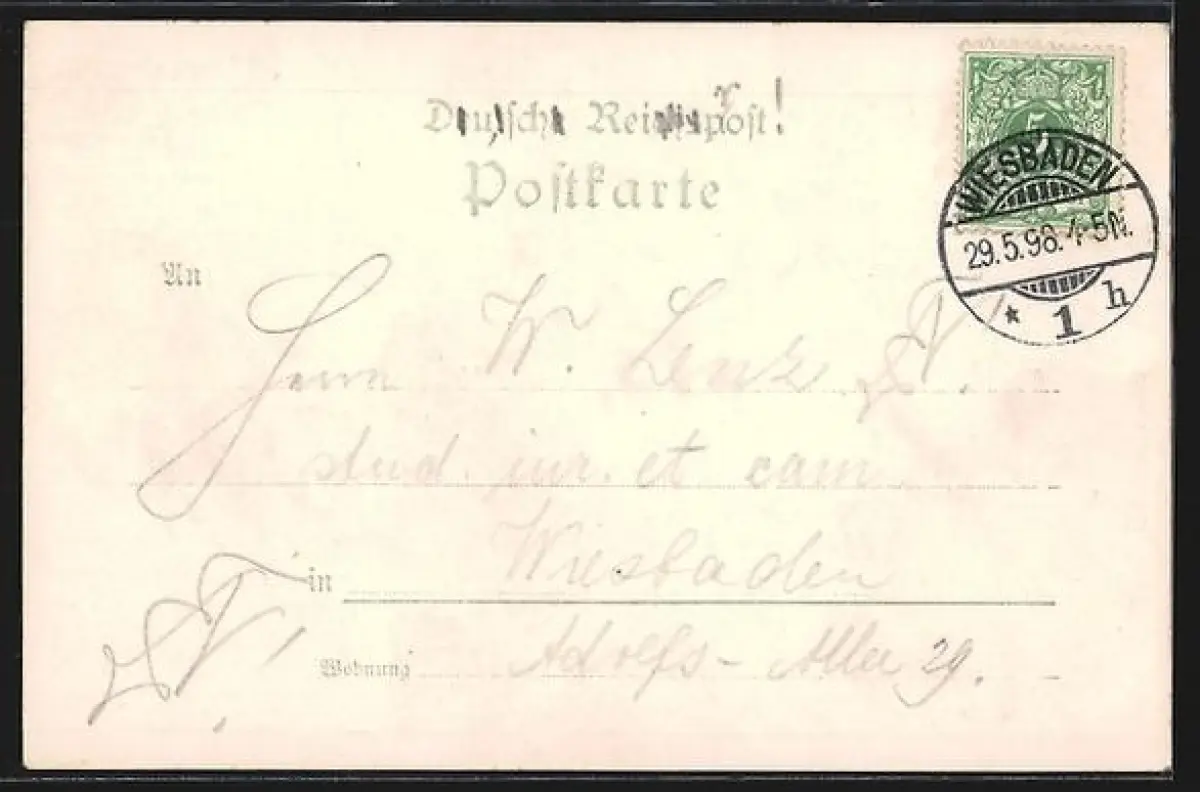 Deutsche Reichspost!
Postkarte
5
WIESBADEN
29.5.98. 4-5N.
* 1 h
An
Herrn W. Lenz
stud. jur. et cam.
in Wiesbaden
Wohnung Adolfs-Allee 29.